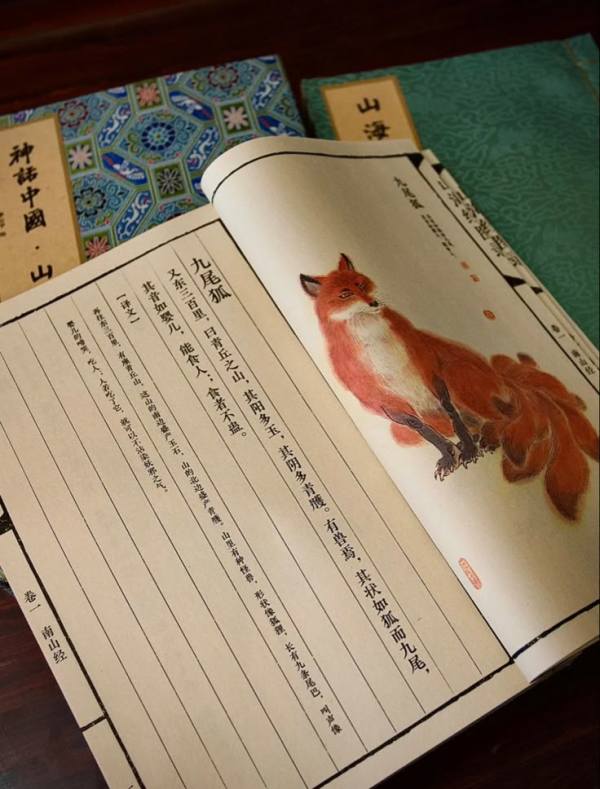 神話中國·山
山海
九尾狐
又东三百里，曰青丘之山，其阳多玉，其阴多青頀。有兽焉，其状如狐而九尾，
其音如婴儿，能食人；食者不蛊。
【译文】
再往东三百里，有座青丘山，这山的南边盛产玉石，山的北边盛产青頀，山里有种怪兽，形状像狐狸，长有九条尾巴，叫声像
婴儿的啼哭，吃人；人若吃了它，就可以不沾染妖邪之气。
卷一 南山经
九尾狐
卷一 南山经